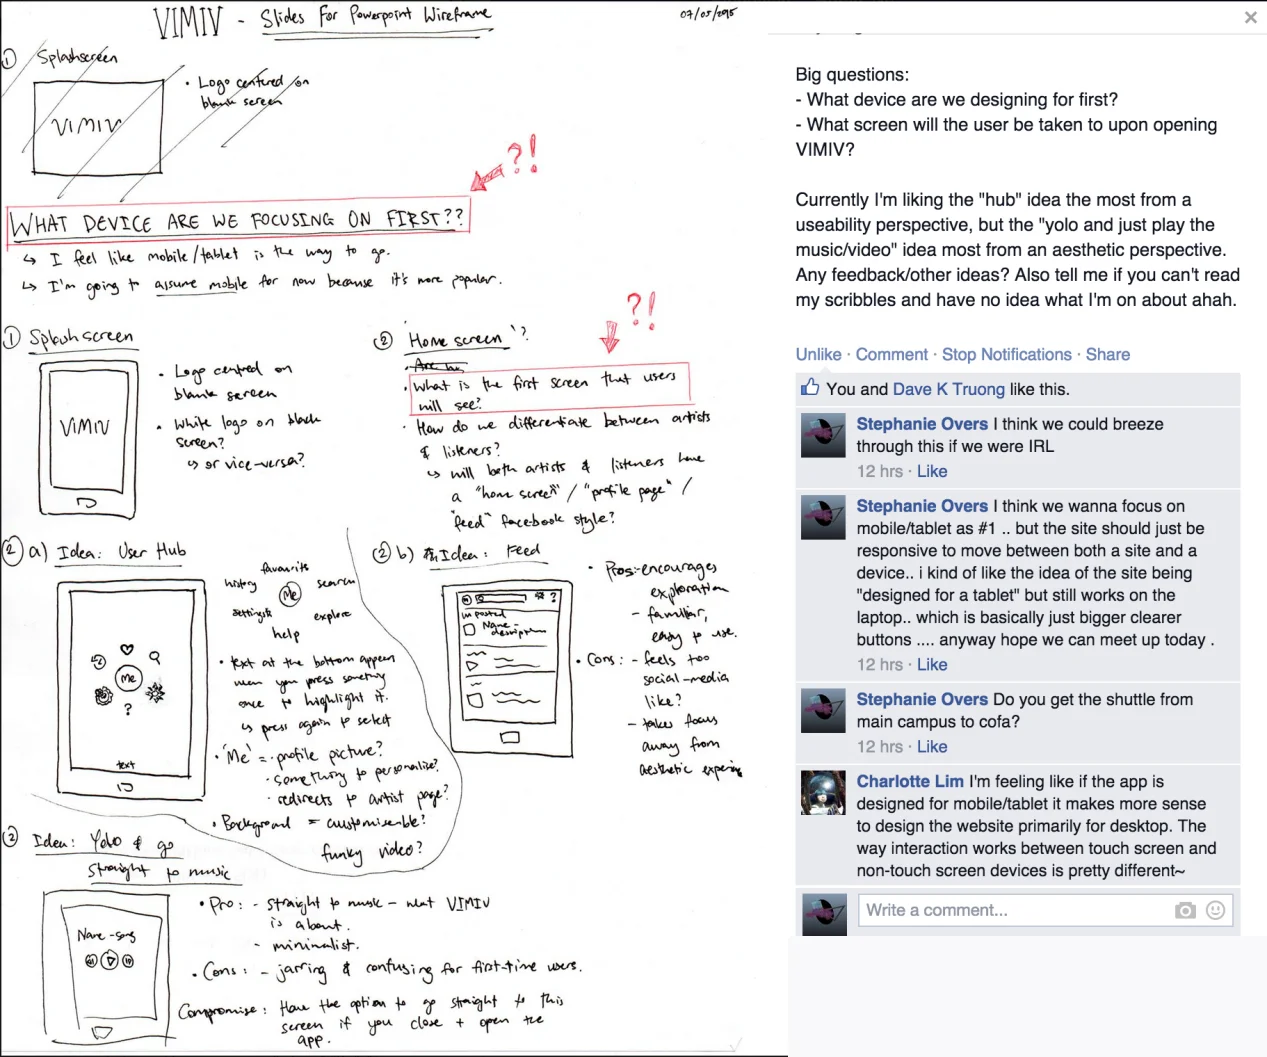 VIMIV - Slides For Powerpoint Wireframe
07/05/2015
① Splashscreen
VIMIV
• Logo centered on
blank screen
?!
WHAT DEVICE ARE WE FOCUSING ON FIRST??
↳ I feel like mobile/tablet is the way to go.
↳ I'm going to assume mobile for now because it's more popular.
① Splash screen
VIMIV
• Logo centred on
blank screen
• White logo on black
screen?
↳ or vice-versa?
② Home screen ?
?!
• What is the first screen that users
will see?
• How do we differentiate between artists
& listeners?
↳ will both artists & listeners have
a "home screen" / "profile page" /
"feed" facebook style?
② a) Idea: User Hub
Me
?
text
favourite
history
Me
search
settings
explore
help
• text at the bottom appears
when you press something
once to highlight it.
↳ press again to select
• 'Me' = • profile picture?
• something to personalise?
• redirects to artist page?
• Background = customisable?
funky video?
② b) Idea: Feed
?
posted
Name -
description
• Pros: - encourages
exploration
- familiar,
easy to use.
• Cons: - feels too
social-media
like?
- takes focus
away from
aesthetic
② Idea: Yolo & go
straight to music
Name - song
• Pro: - straight to music - what VIMIV
is about.
- minimalist.
• Cons: - jarring & confusing for first-time users.
Compromise: Have the option to go straight to this
screen if you close + open the
app.
×
Big questions:
- What device are we designing for first?
- What screen will the user be taken to upon opening
VIMIV?
Currently I'm liking the "hub" idea the most from a
useability perspective, but the "yolo and just play the
music/video" idea most from an aesthetic perspective.
Any feedback/other ideas? Also tell me if you can't read
my scribbles and have no idea what I'm on about ahah.
Unlike · Comment · Stop Notifications · Share
You and Dave K Truong like this.
Stephanie Overs I think we could breeze
through this if we were IRL
12 hrs · Like
Stephanie Overs I think we wanna focus on
mobile/tablet as #1 .. but the site should just be
responsive to move between both a site and a
device.. i kind of like the idea of the site being
"designed for a tablet" but still works on the
laptop.. which is basically just bigger clearer
buttons .... anyway hope we can meet up today .
12 hrs · Like
Stephanie Overs Do you get the shuttle from
main campus to cofa?
12 hrs · Like
Charlotte Lim I'm feeling like if the app is
designed for mobile/tablet it makes more sense
to design the website primarily for desktop. The
way interaction works between touch screen and
non-touch screen devices is pretty different~
Write a comment...